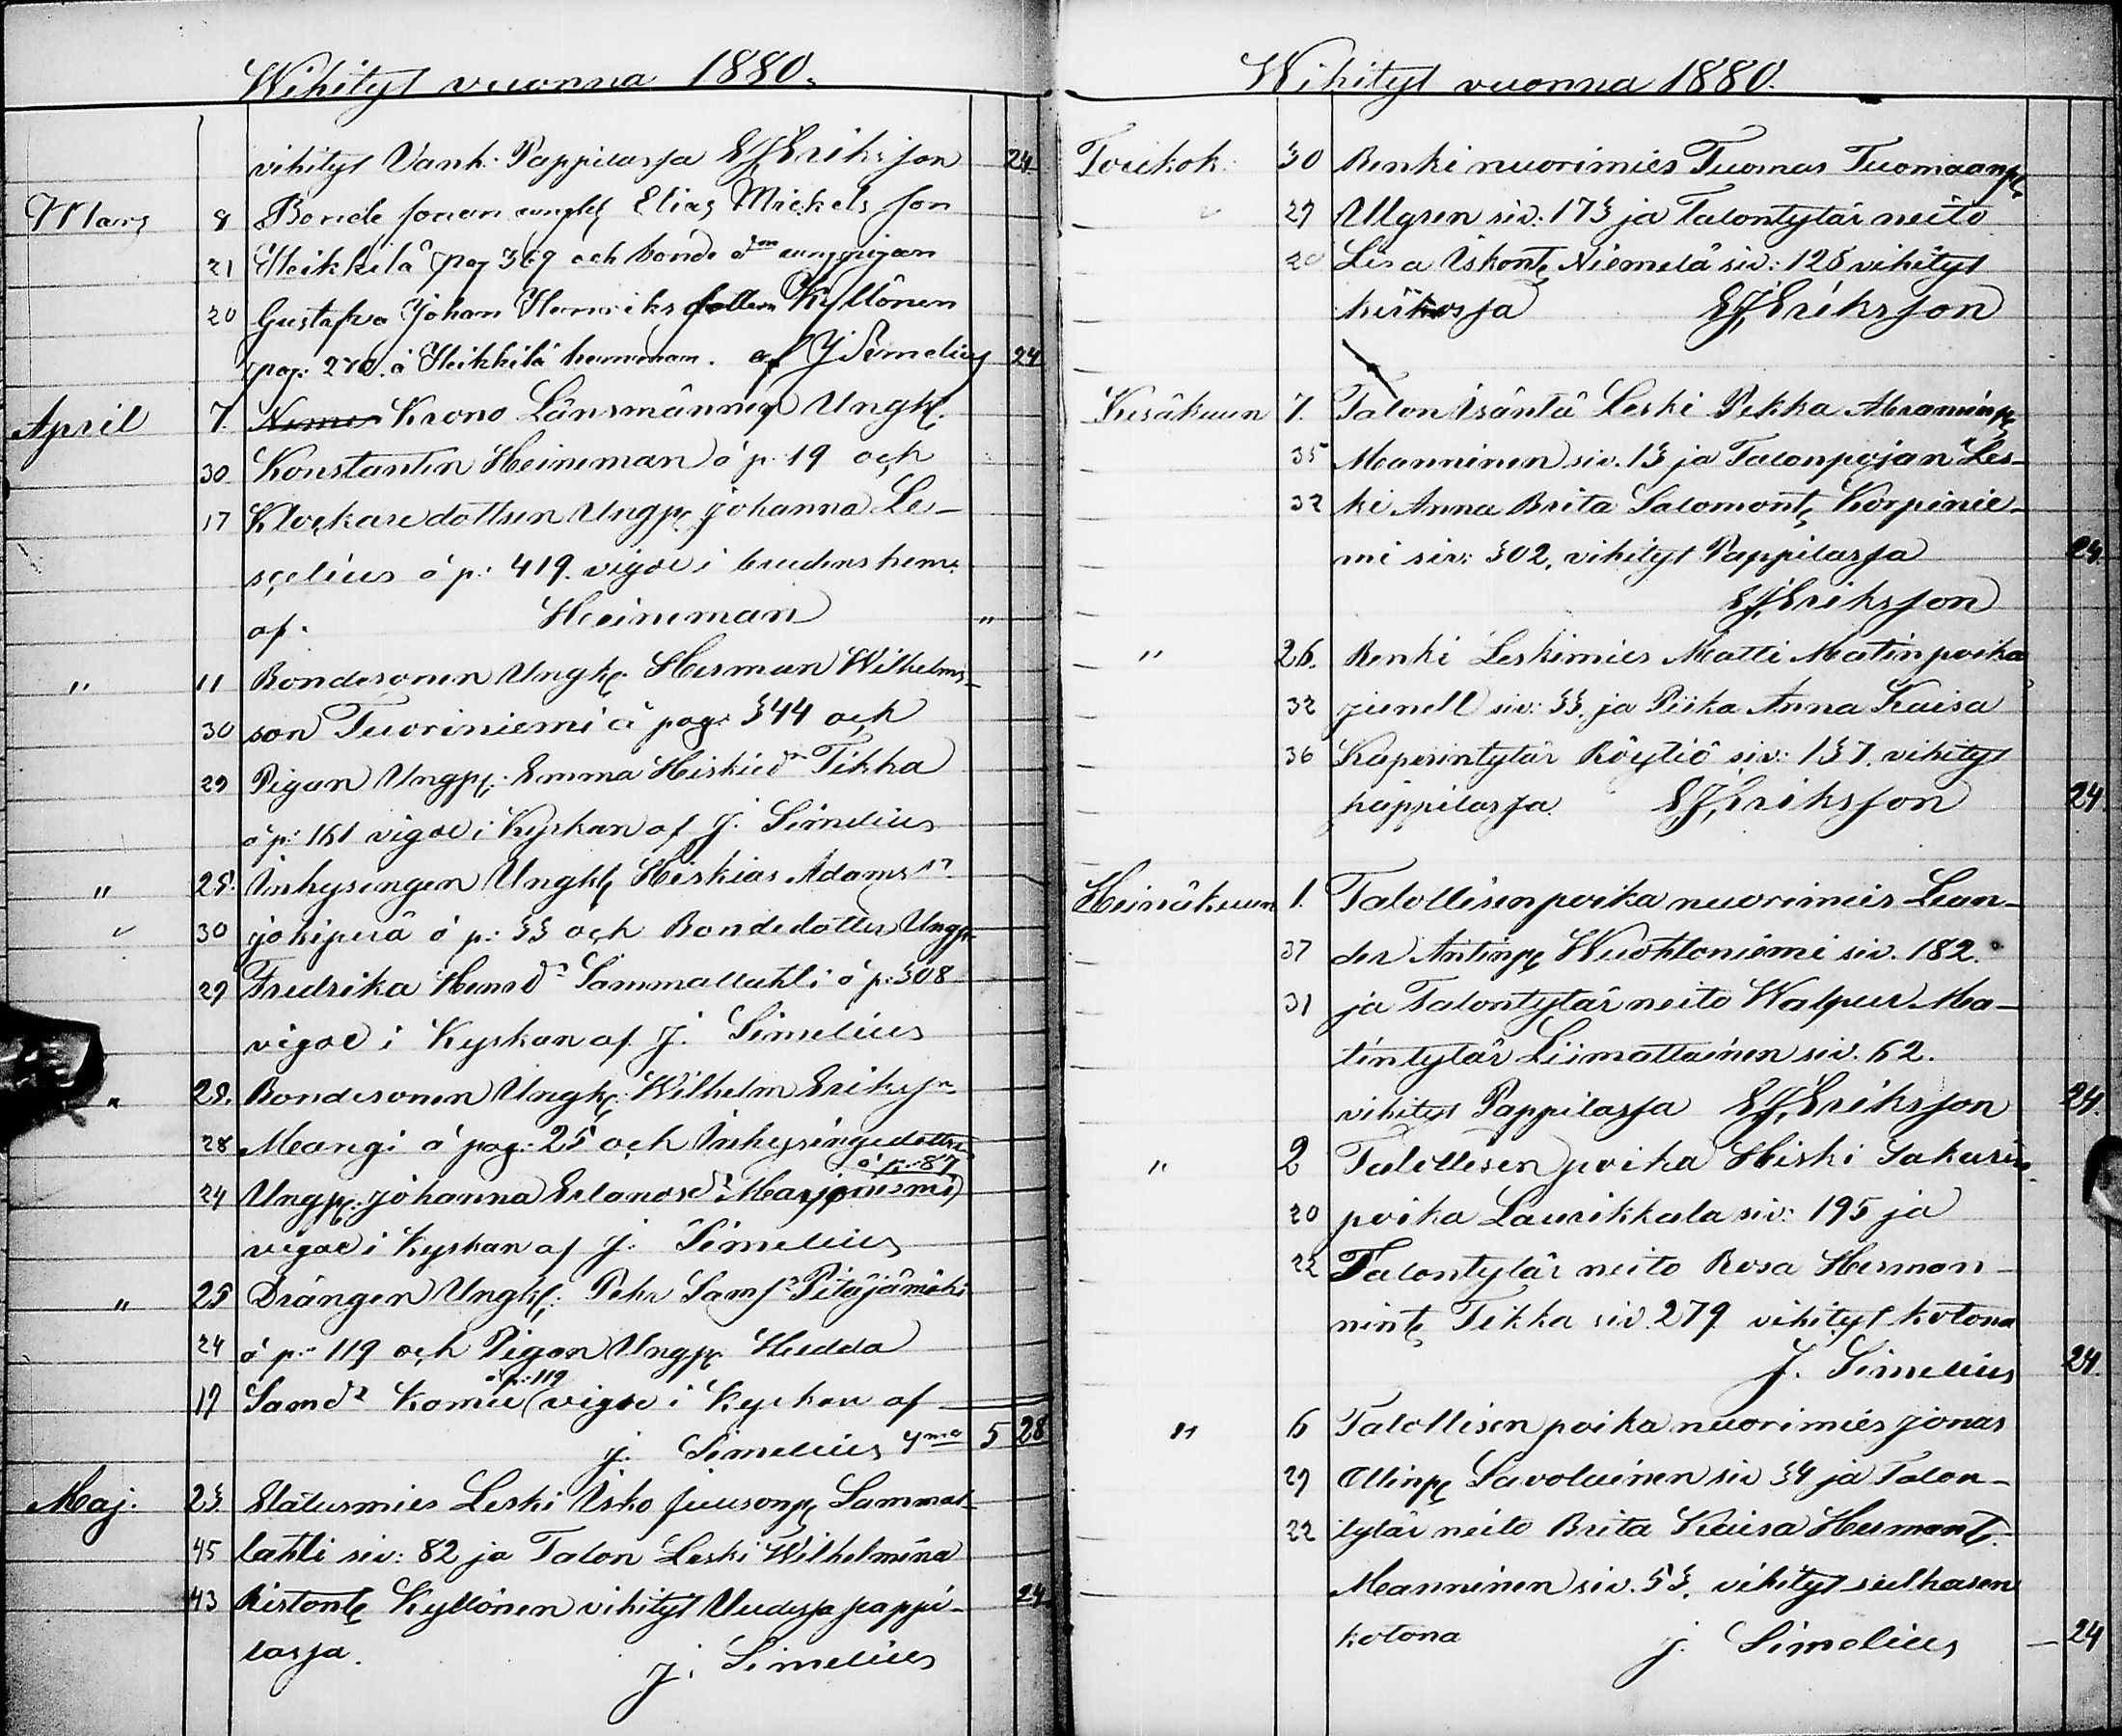 Wihityt vuonna 1880.
vihityt Vanh. Pappilassa E J Eriksson 24
Mars 8 Bonde sonen ungk Elias Mickels son
21 Heikkilä pag 369 och bonde dtn ungpigan
20 Gustafva Johan Henriks dotter Kyllönen
pag: 270. å Heikkilä hemman. af J Simelius 24
April 7. Krono Länsmannen Ungk.
30 Konstantin Heineman å p. 19 och
17 Klockaredottren Ungp. Johanna Le-
scelius å p: 419. vigde i brudens hem.
af. Heineman "
" 11 Bondesonen Ungk. Herman Wilhelms-
30 son Tuoriniemi å pag: 344 och
29 Pigan Ungp. Emma Hiskiedr Tikka
å p: 161 vigde i Kyrkan af J. Simelius
" 25. Inhysingen Ungk Hiskias Adamsn
" 30 Jokiperä å p: 33 och Bondedotter Ungp.
29 Fredrika Henrdr Sammallahti å p: 308
vigde i Kyrkan af J. Simelius
" 28. Bondesonen Ungk. Wilhelm Eriksn
28 Mangi å pag: 25 och Inhysingedottren
å p: 87
24 Ungp. Johanna Erlandsdr Marjoniemi
vigde i Kyrkan af J. Simelius
" 25 Drängen Ungk. Pehr Samsn Pitäjämäki
24 å p: 119 och Pigan Ungp. Hedda
å p: 119
17 Samdr Komu vigde i Kyrkan af
J. Simelius 5 28
Maj. 23. Itätusmies Leski Isko Juusonp. Sammal-
45 lahti siv: 82 ja Talon Leski Wilhelmina
43 Ristont. Kyllönen vihityt Uudessa pappi- 24.
lassa. J. Simelius
Wihityt vuonna 1880.
Toukok: 30 Renki nuorimies Tuomas Tuomaanp.
" 29 Ulgren siv: 173 ja Talontytär neito
20 Lisa Iskont. Niemelä siv: 128 vihityt
kirkossa E J Eriksson
Kesäkuun 7. Talon Isäntä Leski Pekka Abraminp.
35 Manninen siv. 13 ja Talonpojan Les-
32 ki Anna Brita Salomont. Korpinie-
mi siv: 302, vihityt Pappilassa 24.
E J Eriksson
" 26. Renki Leskimies Matti Matinpoika
32 Junell siv: 33. ja Piika Anna Kaisa
36 Kasperintytär Röytiö siv: 137. vihityt
pappilassa. E J Eriksson 24
Heinäkuun 1. Talollisen poika nuorimies Lean-
37 der Antinp. Wuohtoniemi siv. 182.
31 ja Talontytär neito Walpur Ma-
tintytär Liimattainen siv. 62.
vihityt Pappilassa E J Eriksson 24.
" 2 Talollisen poika Hiski Sakarin
20 poika Laurikkala siv: 195 ja
22 Talontytär neito Rosa Herman-
nint. Tikka siv 279 vihityt kotona
J. Simelius 24.
" 6 Talollisen poika nuorimies Jonas
29 Ollinp. Savolainen siv 34 ja Talon-
22 tytär neito Brita Kaisa Hermant.
Manninen siv. 53. vihityt sulhasen
kotona J. Simelius 24